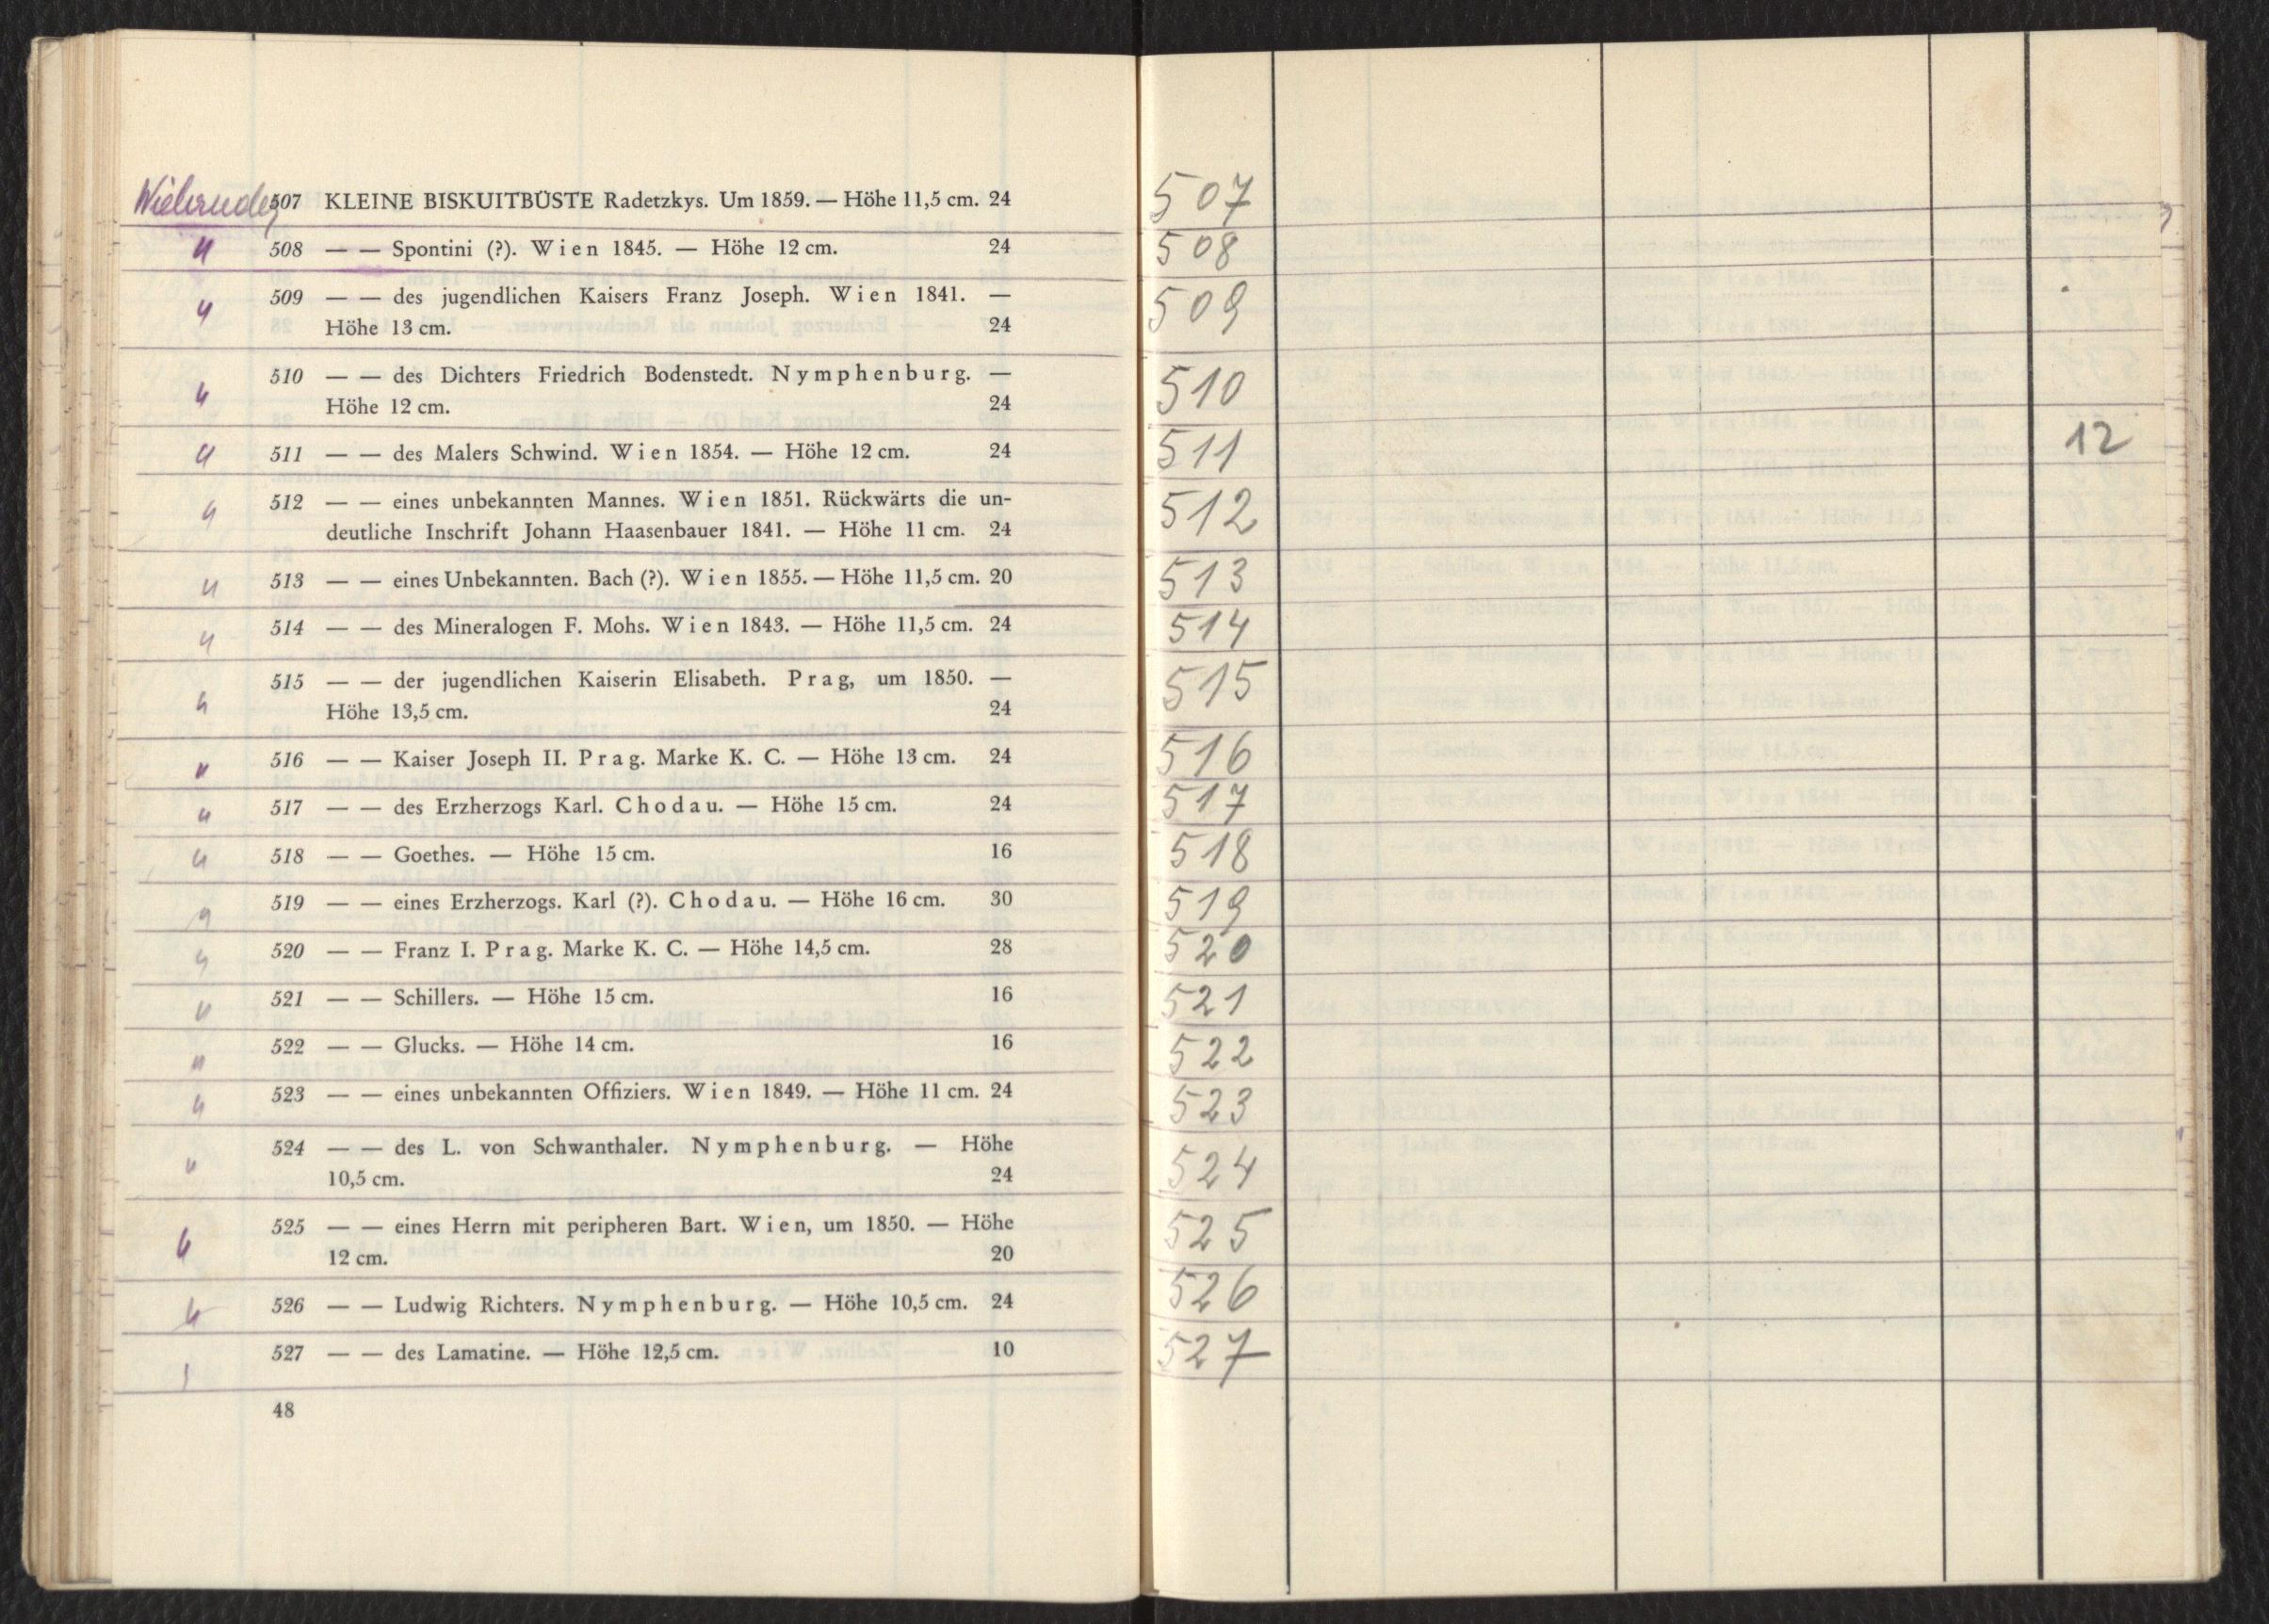 507 KLEINE BISKUITBÜSTE Radetzkys. Um 1859. — Höhe 11,5 cm. 24
" 508 — — Spontini (?). Wien 1845. — Höhe 12 cm. 24
" 509 — — des jugendlichen Kaisers Franz Joseph. Wien 1841. —
Höhe 13 cm. 24
" 510 — — des Dichters Friedrich Bodenstedt. Nymphenburg. —
Höhe 12 cm. 24
" 511 — — des Malers Schwind. Wien 1854. — Höhe 12 cm. 24
" 512 — — eines unbekannten Mannes. Wien 1851. Rückwärts die un-
deutliche Inschrift Johann Haasenbauer 1841. — Höhe 11 cm. 24
" 513 — — eines Unbekannten. Bach (?). Wien 1855. — Höhe 11,5 cm. 20
" 514 — — des Mineralogen F. Mohs. Wien 1843. — Höhe 11,5 cm. 24
" 515 — — der jugendlichen Kaiserin Elisabeth. Prag, um 1850. —
Höhe 13,5 cm. 24
" 516 — — Kaiser Joseph II. Prag. Marke K. C. — Höhe 13 cm. 24
" 517 — — des Erzherzogs Karl. Chodau. — Höhe 15 cm. 24
" 518 — — Goethes. — Höhe 15 cm. 16
" 519 — — eines Erzherzogs. Karl (?). Chodau. — Höhe 16 cm. 30
" 520 — — Franz I. Prag. Marke K. C. — Höhe 14,5 cm. 28
" 521 — — Schillers. — Höhe 15 cm. 16
" 522 — — Glucks. — Höhe 14 cm. 16
" 523 — — eines unbekannten Offiziers. Wien 1849. — Höhe 11 cm. 24
" 524 — — des L. von Schwanthaler. Nymphenburg. — Höhe
10,5 cm. 24
" 525 — — eines Herrn mit peripheren Bart. Wien, um 1850. — Höhe
12 cm. 20
" 526 — — Ludwig Richters. Nymphenburg. — Höhe 10,5 cm. 24
527 — — des Lamatine. — Höhe 12,5 cm. 10
48
507
508
509
510
511 12
512
513
514
515
516
517
518
519
520
521
522
523
524
525
526
527